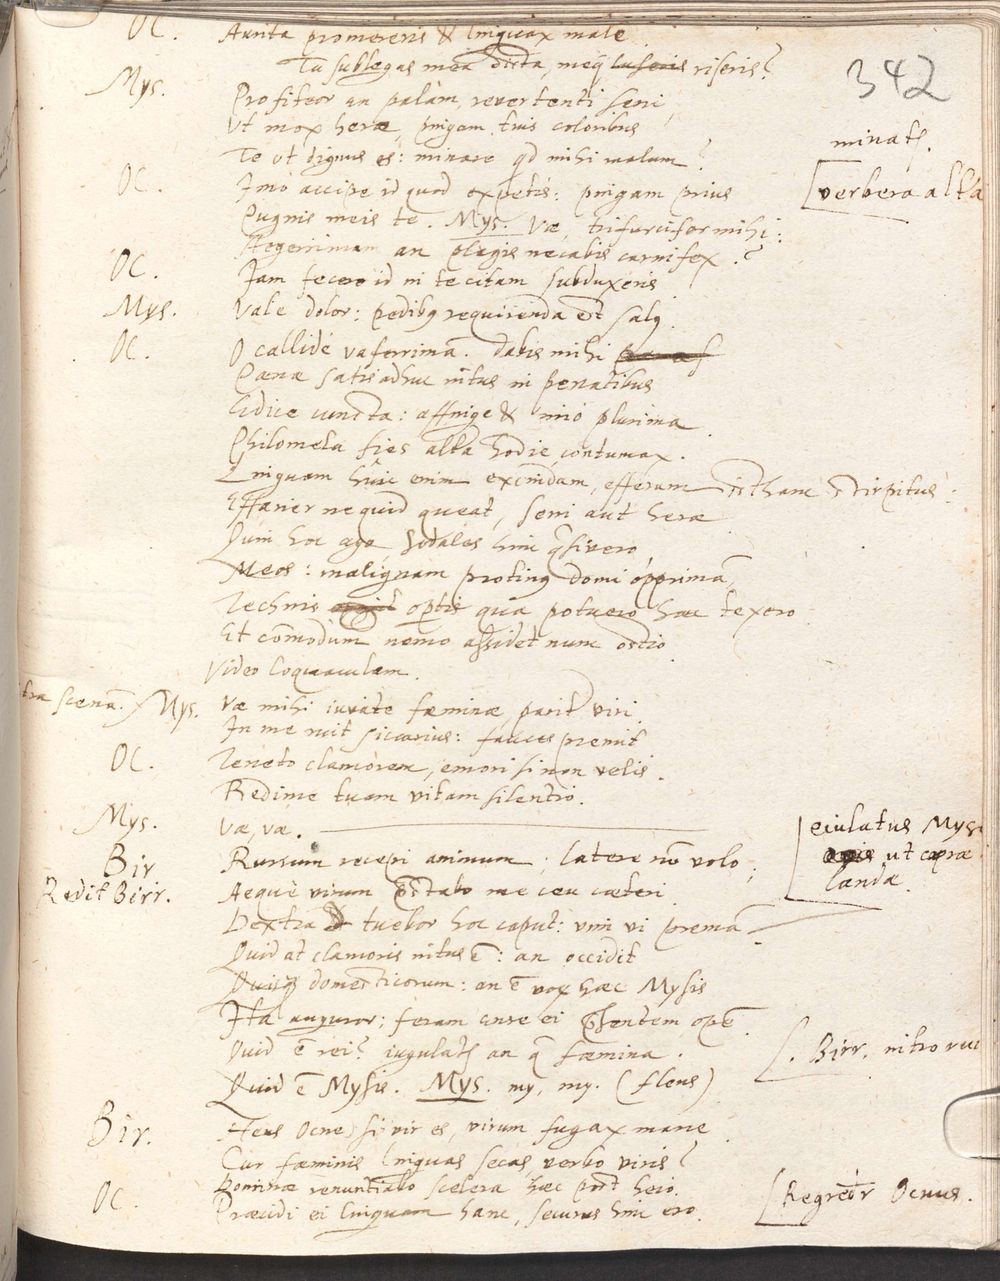 OC. Aurita promereris & linguax male
Tu sublegas mea dicta, meq luseris riseris?
342
Mys. Profiteor an palàm, revertenti seni,
Ut mox heræ, pingam tuis coloribus
minat.
Te ut dignus es: minare qd mihi malum?
OC. Imò accipe id quod expetis: pingam prius
verbera alta
Pugnis meis te. Mys. Væ, trifurcifer mihi:
Aegerrimam an plagis necabis carnifex?
OC. Jam fecero id ni te citam subduxeris
Mys. Vale dolor: pedibq requirenda est salq.
OC. O callidè vaferrimã. dabis mihi
Pænæ satis adhuc intus in penatibus
Edice cuncta: affinge & imò plurima
Philomela fies alba hodie, contumax.
Linguam huic enim excindam, efferum stirpitus:
Effarier nequid queat, seni aut heræ
Quin hoc ago sodales hinc
Meos: malignam protinq domi opprimã,
Technis optis qua potuero hac texero
Et cõmodum nemo assidet num ostio
Video loquaculam.
scenã. Mys. Væ mihi iuvate fæminæ, parit viri
In me ruit siccarius: fauces premit
OC. Teneto clamorem, emori si non velis.
Redime tuam vitam silentio.
Mys. Væ, væ.
eiulatus Mys
ut capræ
landæ.
Bir Rursum recepi animum; latere nõ volo
Redit Birr. Aequè virum præstabo me ceu cæteri
Dextra tuebor hoc caput: vim vi premã
Quid at clamoris intus ẽ: an occidit
domesticorum: an ẽ vox hæc Mysis
Ita auguror; feram anse ei opẽ
Birr. intro
Quid ẽ rei? iugulat an q fæmina.
Quid ẽ Mysis. Mys. my, my. (flens)
Bir. Heus Ocne, si vir es, virum fugax mane
Cur fæminis linguas secas, verbo viris?
Dominæ renuntiabo scelera hæc post hero.
Regredit Ocnus.
OC. Præcidi ei linguam hanc, securus hinc ero.